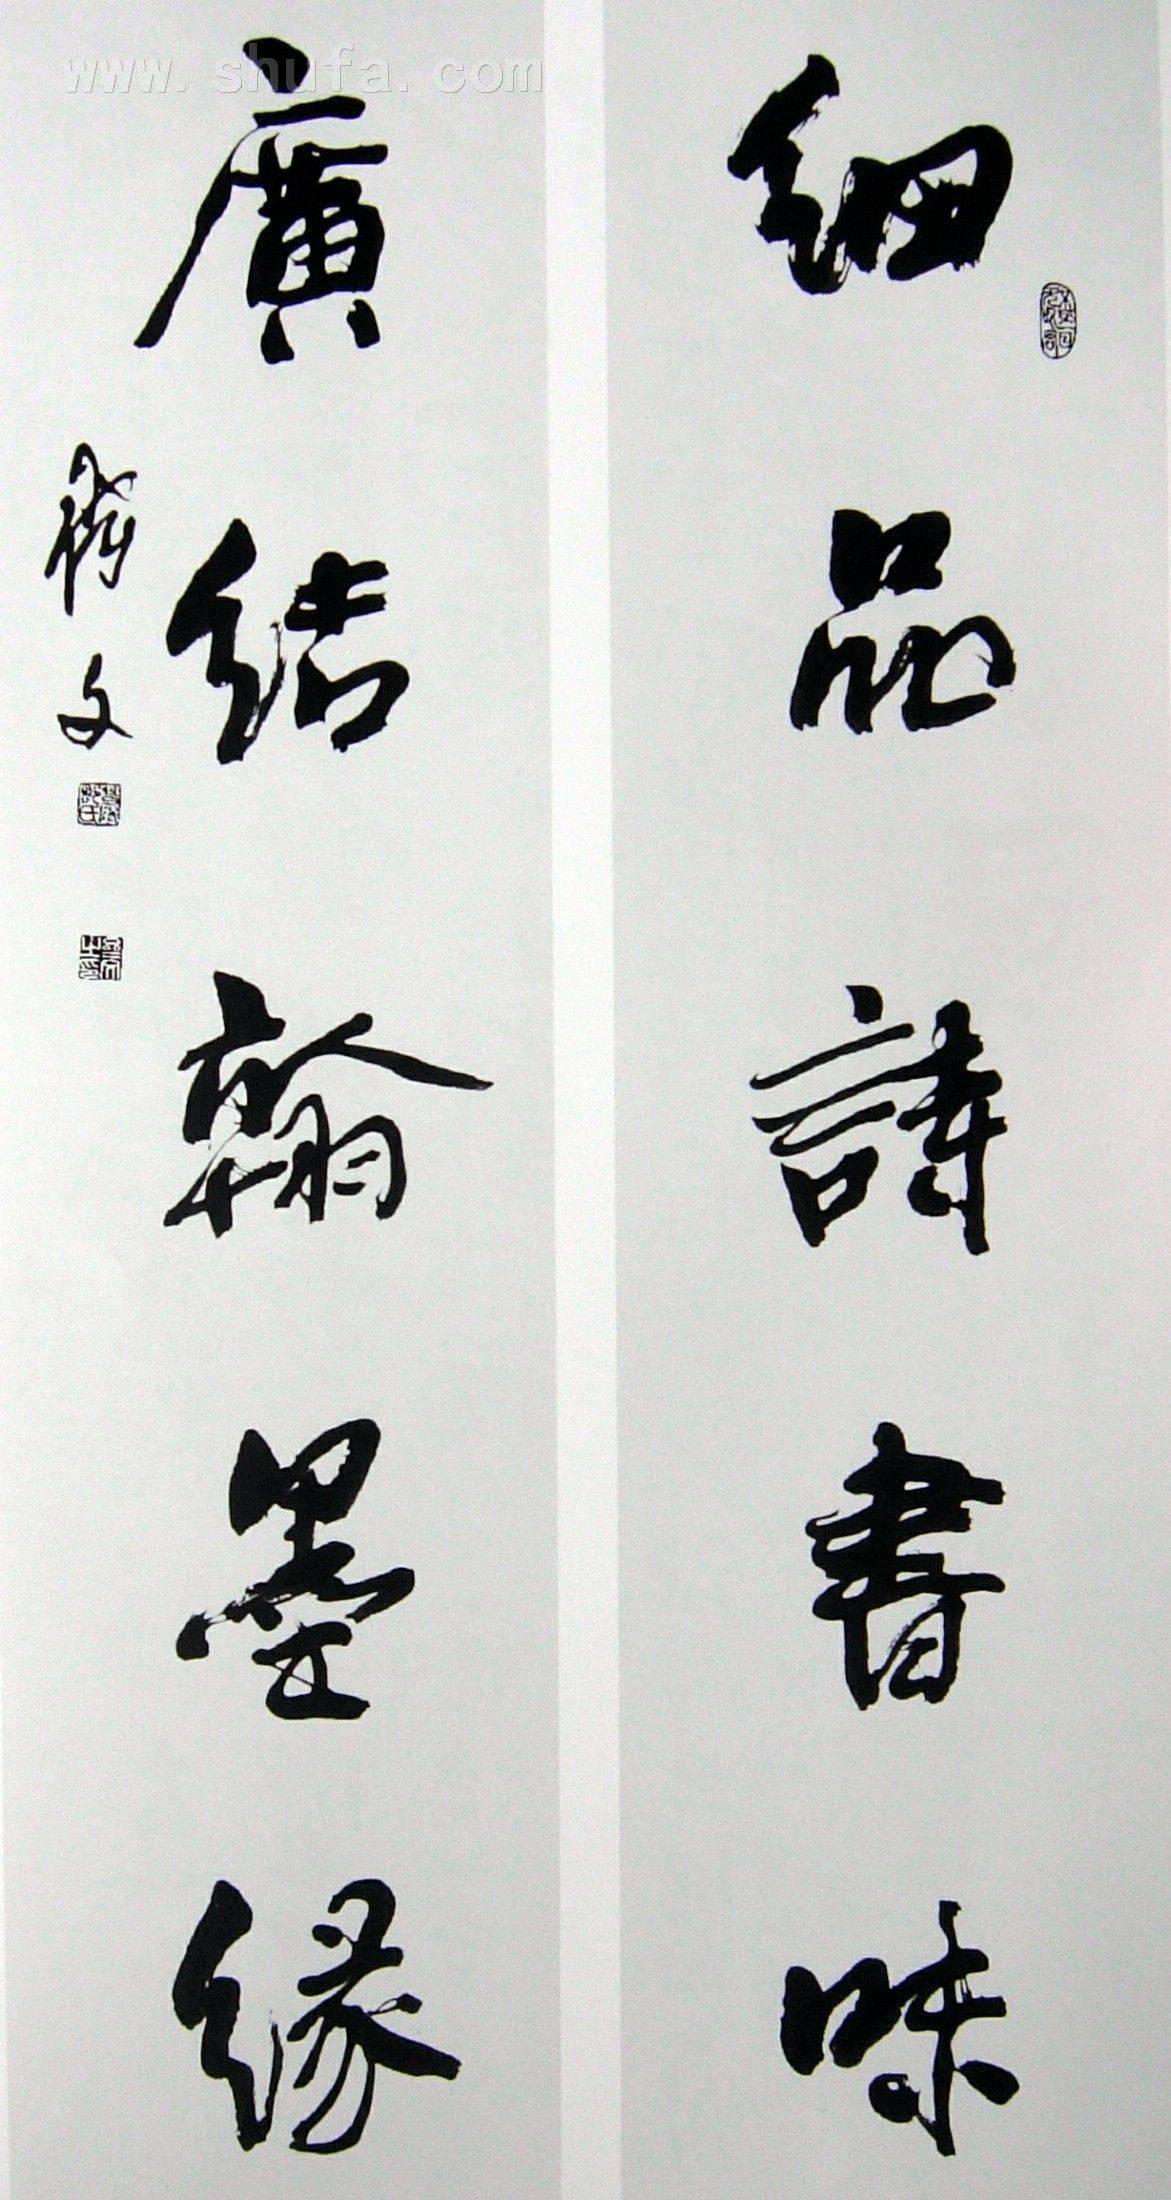 細品詩書味
廣結翰墨緣
www.shufa.com